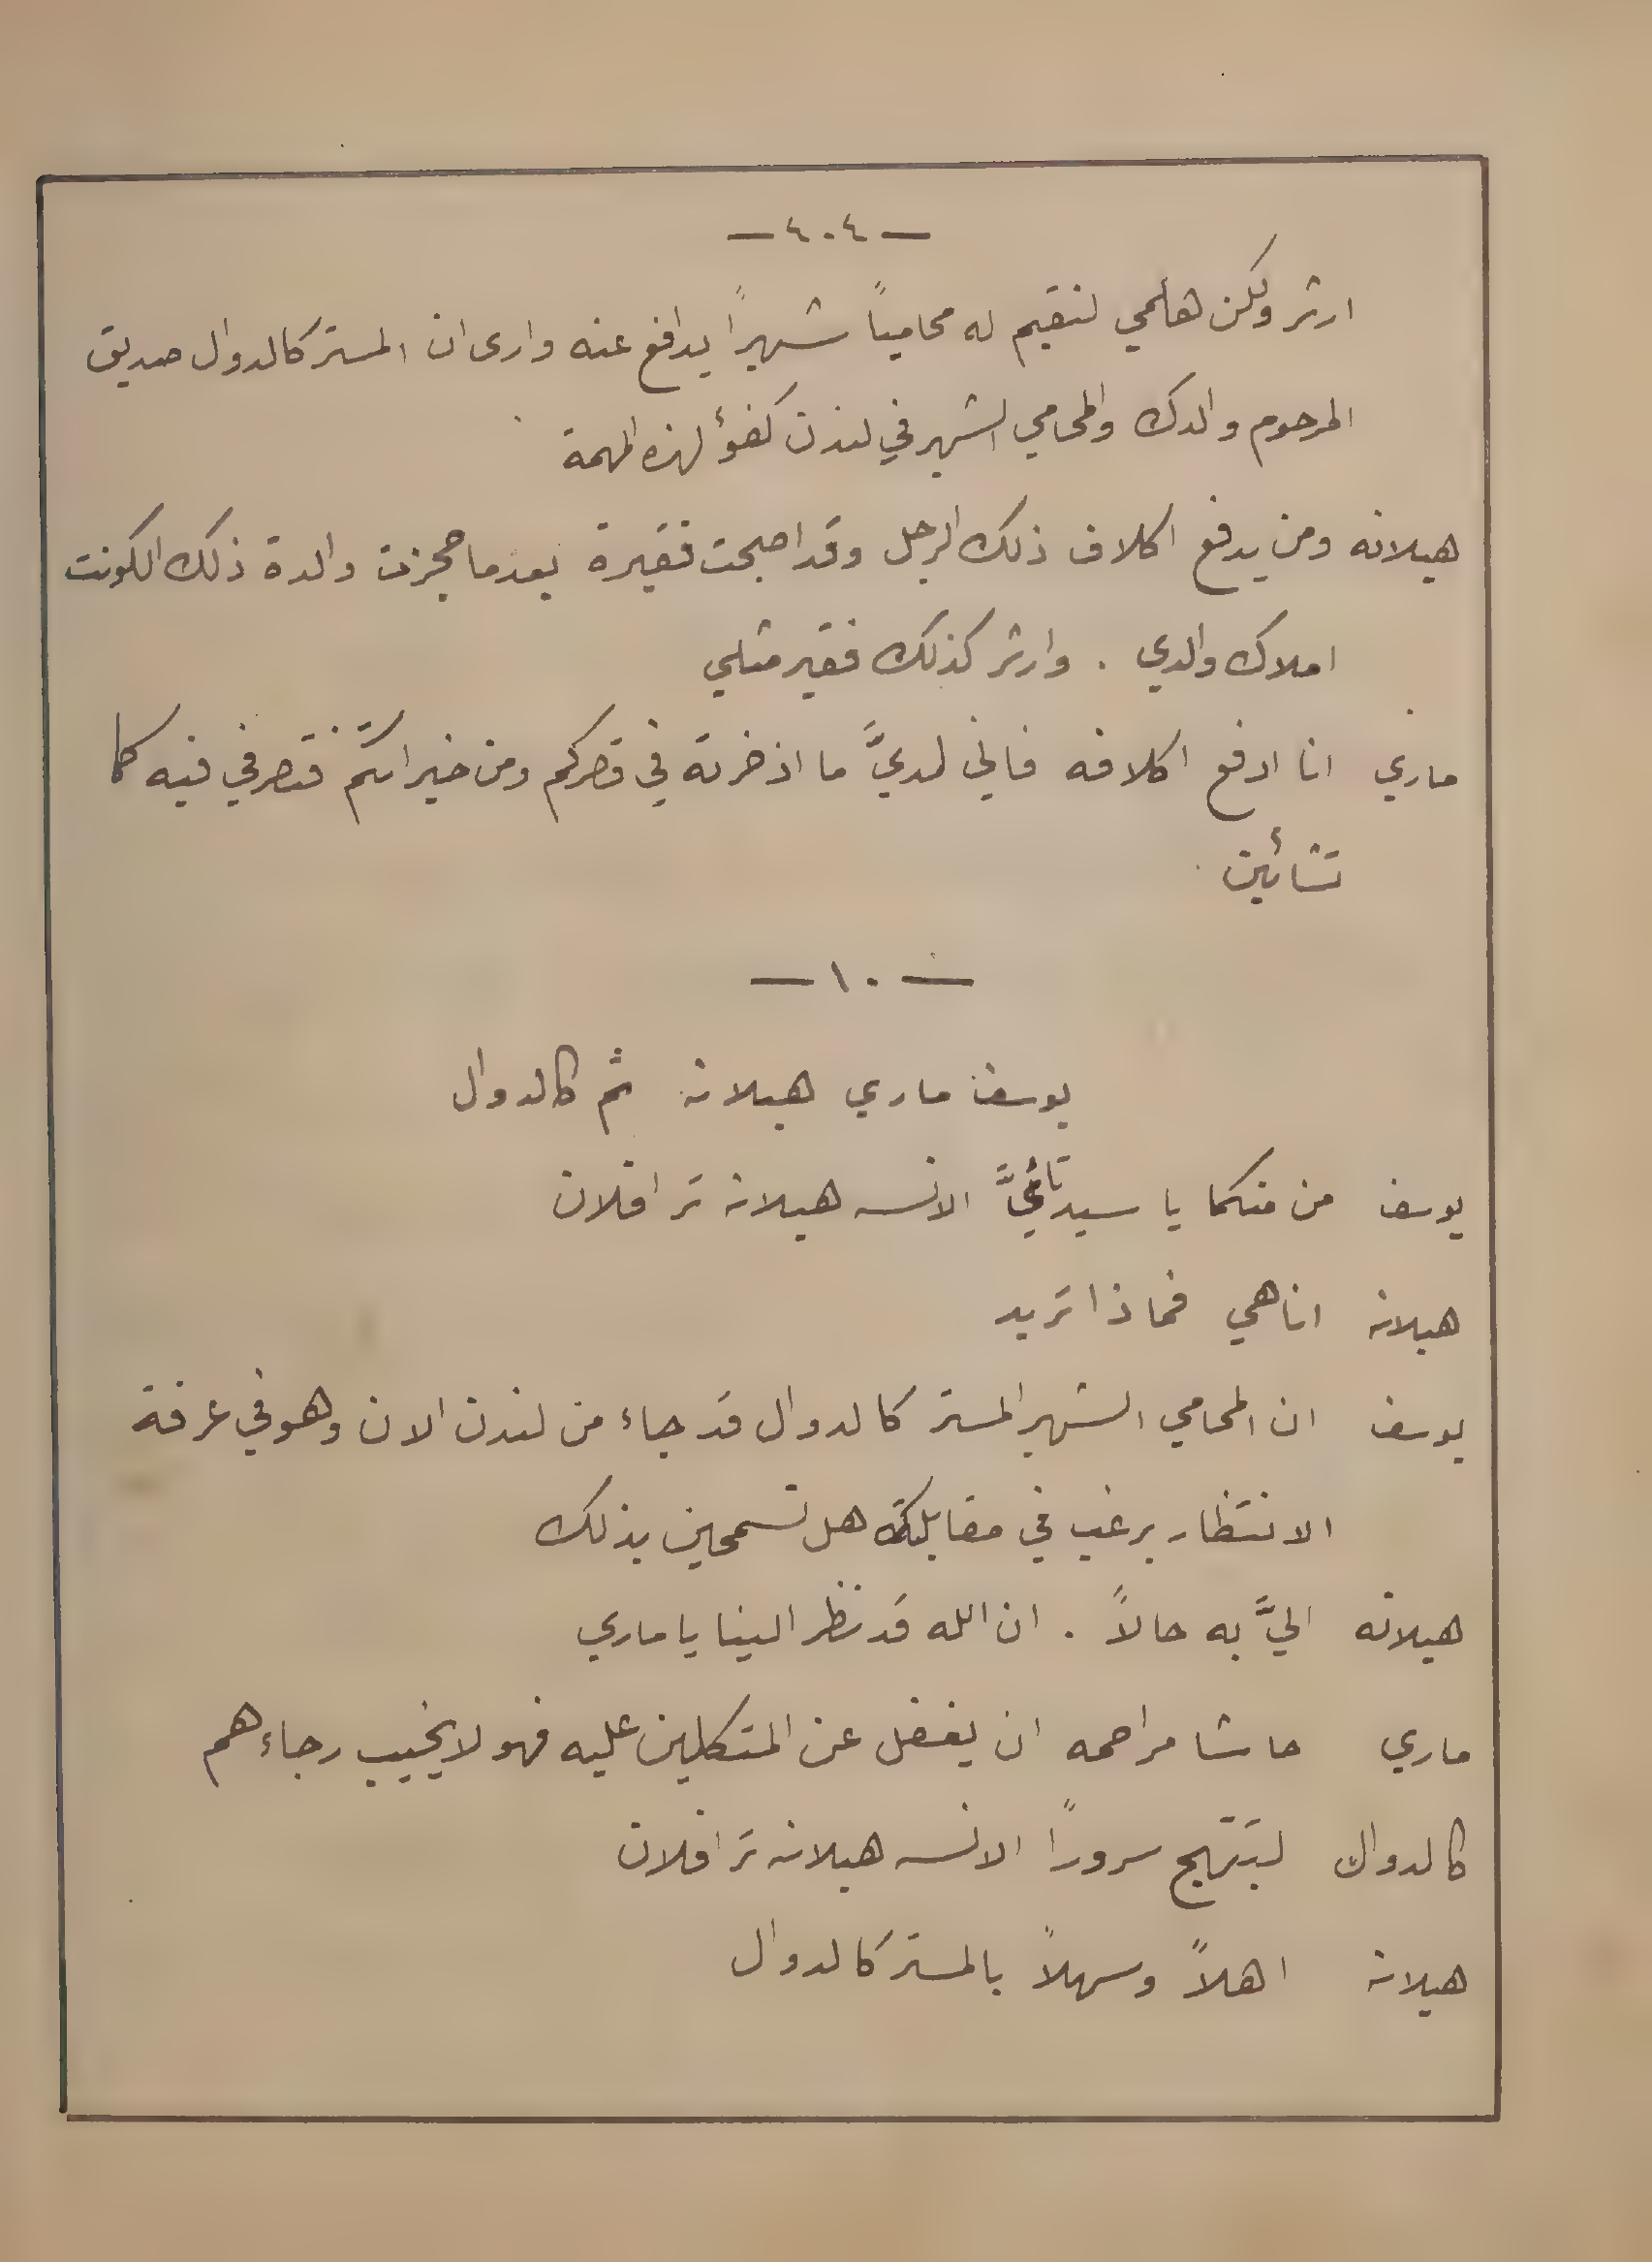 — ٤٠٤ —
ارثر ولكن هلمي لنقيم له محامياً شهيراً يدافع عنه وارى ان المستر كالدوال صديق
المرحوم والدك والمحامي الشهير في لندن كفؤ لهذه المهمة
هيلانه ومن يدفع اكلاف ذلك الرجل وقد اصبحت فقيرة بعدما حجزت والدة ذلك الكونت
املاك والدي . وارثر كذلك فقير مثلي
ماري انا ادفع اكلافه فاني لديَّ ما اذخرته في قصركم ومن خيراتكم فتصرفي فيه كما
تشائين
— ١٠ —
يوسف ماري هيلانة ثم كالدوال
يوسف من منكما يا سيدتايَّ الانسه هيلانة ترافلان
هيلانة انا هي فماذا تريد
يوسف ان المحامي الشهير المستر كالدوال قد جاء من لندن الان وهو في غرفة
الانتظار يرغب في مقابلتك هل تسمحين بذلك
هيلانه اليَّ به حالاً . ان الله قد نظر الينا يا ماري
ماري حاشا مراحمه ان يغفل عن المتكلين عليه فهو لا يخيب رجاءهم
كالدوال لتبتهج سروراً الانسه هيلانة ترافلان
هيلانة اهلاً وسهلاً بالمستر كالدوال